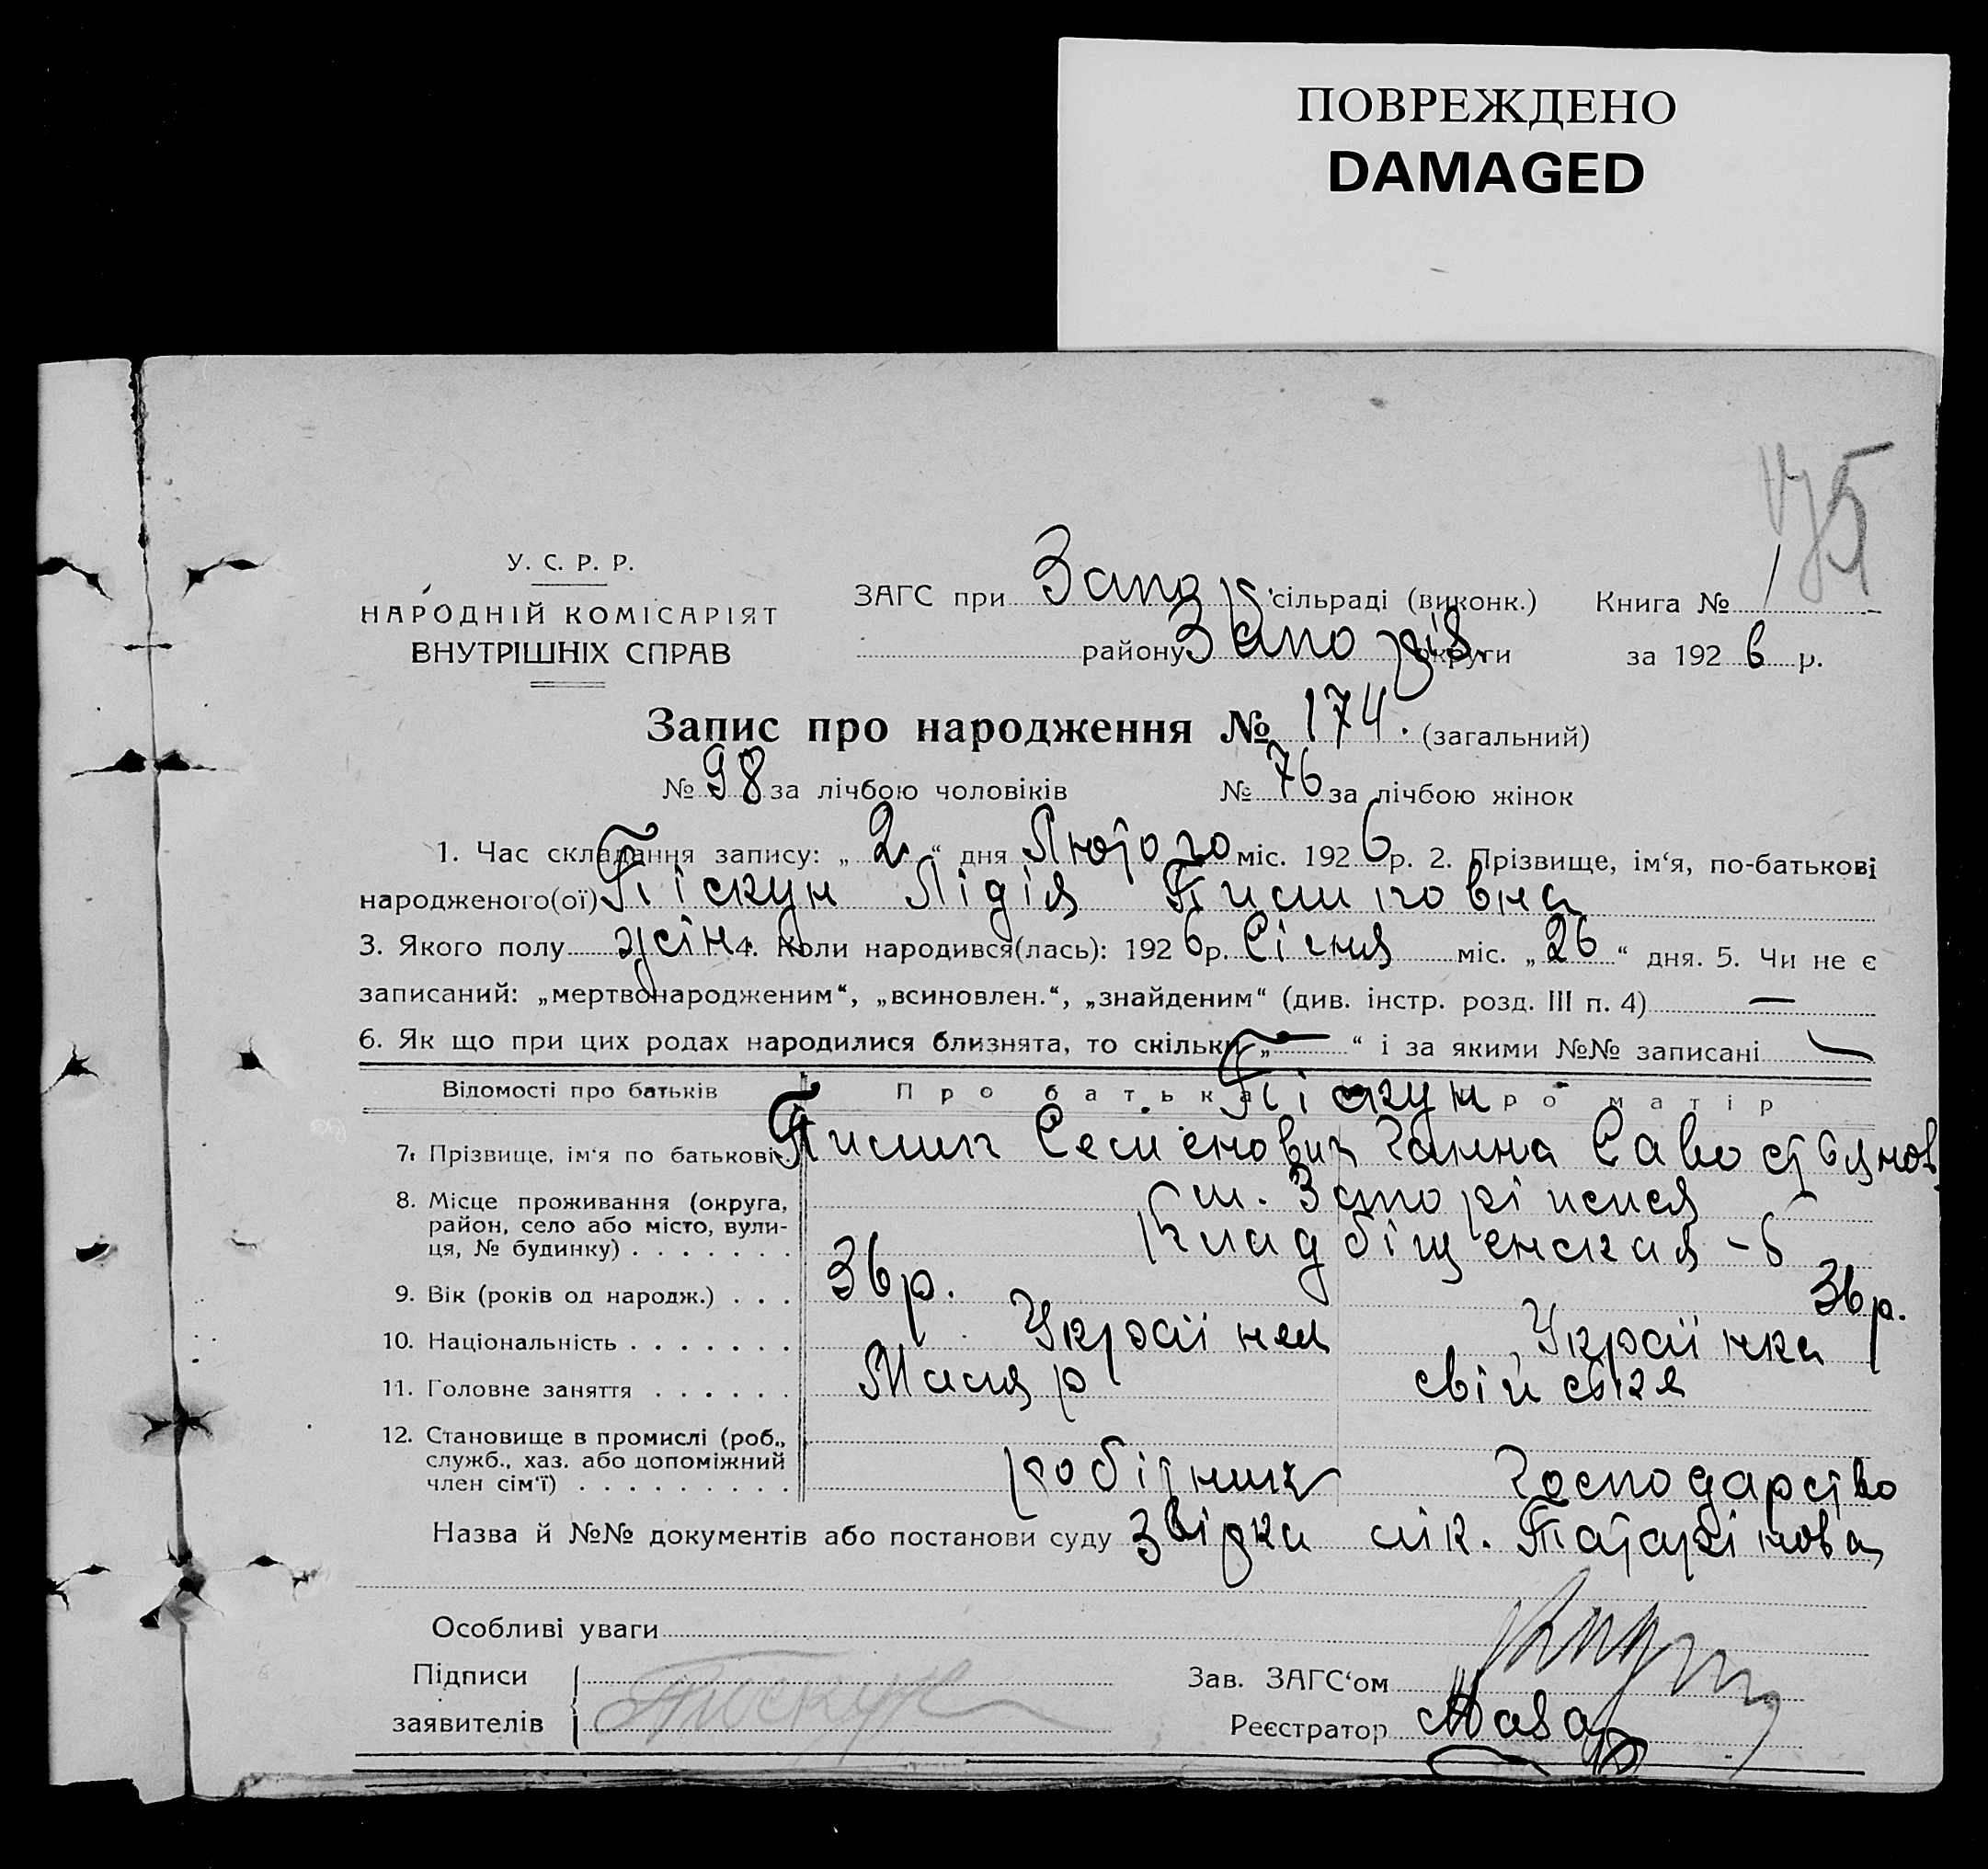 ПОВРЕЖДЕНО
DAMAGED
175
У. С. Р. Р.
НАРОДНІЙ КОМІСАРІЯТ
ВНУТРІШНІХ СПРАВ
ЗАГС при Запор сільраді (виконк.) Книга № 1
району Запорів округи за 1926 р.
Запис про народження № 174. (загальний)
№ 98 за лічбою чоловіків № 76 за лічбою жінок
1. Час складання запису: „2“ дня Лютого міс. 1926 р. 2. Прізвище, ім‘я, по-батькові
народженого(ої) Піскун Лідія Тимковна
3. Якого полу жін. 4. Коли народився(лась): 1926 р. Січня міс. „26“ дня. 5. Чи не є
записаний: „мертвонародженим“, „всиновлен.“, „знайденим“ (див. інстр. розд. III п. 4) —
6. Як що при цих родах народилися близнята, то скільки „—“ і за якими №№ записані —
Відомості про батьків Про батька Про матір
Піскун
7. Прізвище, ім‘я по батькові Тимиш Семенович Ганна Савостянов
8. Місце проживання (округа,
район, село або місто, вули-
ця, № будинку) . . . . . . .
м. Запоріжжя
Кладбіщенская - 6
9. Вік (років од народж.) . . . 36 р. 36 р.
10. Національність . . . . . . . Українец Українка
11. Головне заняття . . . . . . Маляр свійське
12. Становище в промислі (роб.,
служб., хаз. або допоміжний
член сім‘ї) . . . . . . . . . робітник Господарство
Назва й №№ документів або постанови суду Звідка лік. Татарінова
Особливі уваги
Підписи
заявителів Пискун
Зав. ЗАГС‘ом
Реєстратор